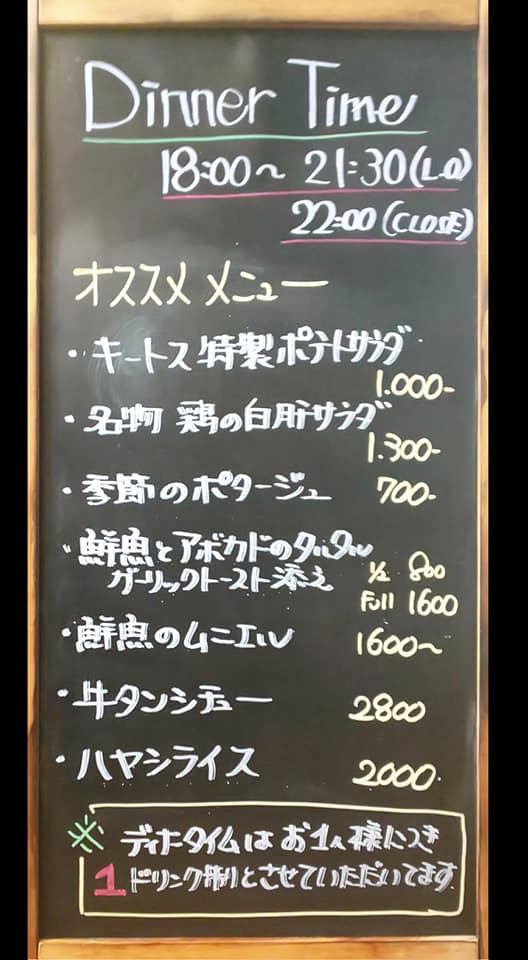 Dinner Time
18:00～ 21:30(L.O)
22:00(CLOSE)
オススメ メニュー
・キートス特製ポテトサラダ
1.000-
・名物 鶏の白肝サラダ
1.300-
・季節のポタージュ 700-
・鮮魚とアボカドのタルタル
ガーリックトースト添え 1/2 800
Full 1600
・鮮魚のムニエル 1600～
・牛タンシチュー 2800
・ハヤシライス 2000.
※ ディナータイムはお1人様につき
1ドリンク制とさせていただいてます